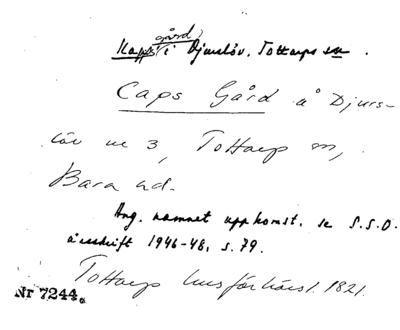 Kapps gård i Djurslöv. Tottarps sn.
Caps Gård å Djurs-
löv nr 3, Tottarp sn,
Bara hd.
Ang. namnet uppkomst, se S.S.O.
årsskrift 1946-48, s. 79.
Tottarp husförhörsl. 1821.
Nr 7244a